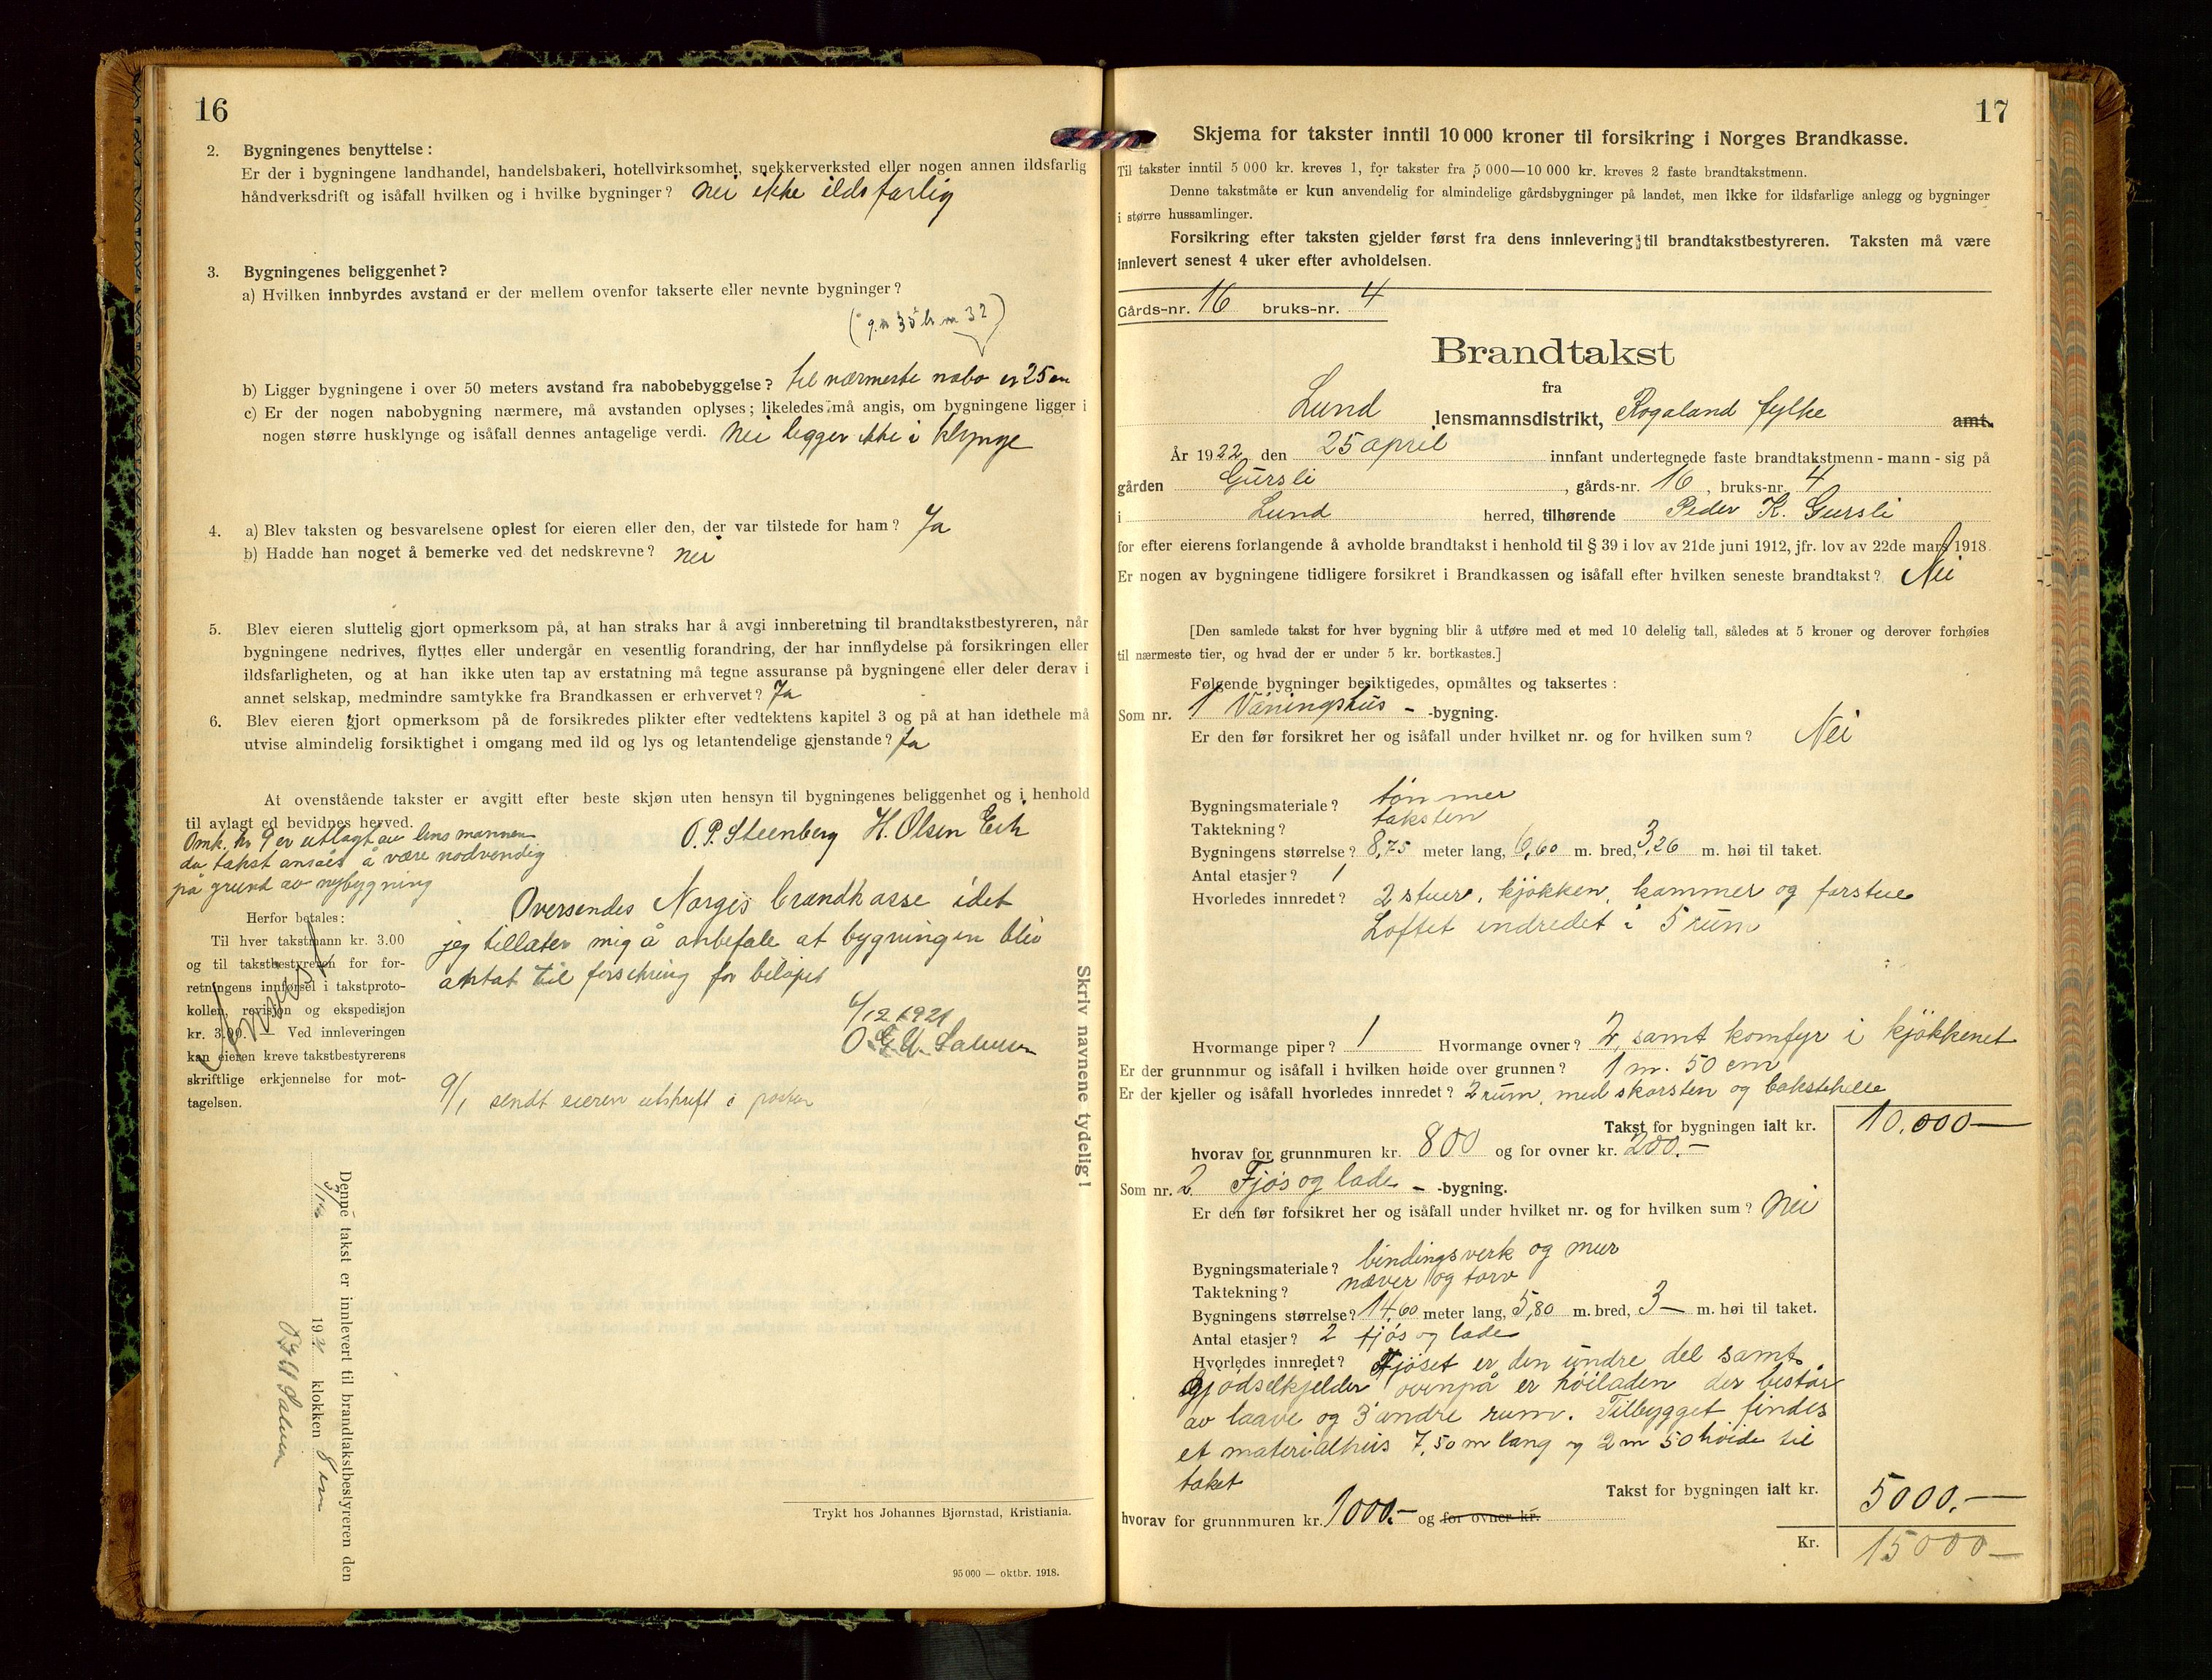 16
2. Bygningenes benyttelse:
Er der i bygningene landhandel, handelsbakeri, hotellvirksomhet, snekkerverksted eller nogen annen ildsfarlig
håndverksdrift og isåfall hvilken og i hvilke bygninger? Nei ikke ildsfarlig
3. Bygningenes beliggenhet?
a) Hvilken innbyrdes avstand er der mellem ovenfor takserte eller nevnte bygninger?
(g.n 35 br n 32)
b) Ligger bygningene i over 50 meters avstand fra nabobebyggelse? til nærmeste nabo er 25 m
c) Er der nogen nabobygning nærmere, må avstanden oplyses; likeledes må angis, om bygningene ligger i
nogen større husklynge og isåfall dennes antagelige verdi. Nei ligger ikke i klynge
4. a) Blev taksten og besvarelsene oplest for eieren eller den, der var tilstede for ham? Ja
b) Hadde han noget å bemerke ved det nedskrevne? nei
5. Blev eieren sluttelig gjort opmerksom på, at han straks har å avgi innberetning til brandtakstbestyreren, når
bygningene nedrives, flyttes eller undergår en vesentlig forandring, der har innflydelse på forsikringen eller
ildsfarligheten, og at han ikke uten tap av erstatning må tegne assuranse på bygningene eller deler derav i
annet selskap, medmindre samtykke fra Brandkassen er erhvervet? Ja
6. Blev eieren gjort opmerksom på de forsikredes plikter efter vedtektens kapitel 3 og på at han idethele må
utvise almindelig forsiktighet i omgang med ild og lys og letantendelige gjenstande? Ja
At ovenstående takster er avgitt efter beste skjøn uten hensyn til bygningenes beliggenhet og i henhold
til avlagt ed bevidnes herved.
O. P. Steenberg H. Olsen Eik
Omk. kr 9 er utlagt av lensmannen
da takst ansaes å være nødvendig
på grund av nybygning
Oversendes Norges brandkasse idet
jeg tillater mig å anbefale at bygningen bliv
antat til forsikring for beløpet
6/12 1921
Herfor betales:
Til hver takstmann kr. 3.00
og til takstbestyreren for for-
retningens innførsel i takstproto-
kollen, revisjon og ekspedisjon
kr. 3.00. — Ved innleveringen
kan eieren kreve takstbestyrerens
skriftlige erkjennelse for mot-
tagelsen.
9/1 sendt eieren utskrift i posten
Skriv navnene tydelig!
Denne takst er innlevert til brandtakstbestyreren den
1921 klokken 8
Trykt hos Johannes Bjørnstad, Kristiania.
95 000 — oktbr. 1918.
17
Skjema for takster inntil 10 000 kroner til forsikring i Norges Brandkasse.
Til takster inntil 5 000 kr. kreves 1, for takster fra 5 000—10 000 kr. kreves 2 faste brandtakstmenn.
Denne takstmåte er kun anvendelig for almindelige gårdsbygninger på landet, men ikke for ildsfarlige anlegg og bygninger
i større hussamlinger.
Forsikring efter taksten gjelder først fra dens innlevering til brandtakstbestyreren. Taksten må være
innlevert senest 4 uker efter avholdelsen.
Gårds-nr. 16 bruks-nr. 4
Brandtakst
fra
Lund lensmannsdistrikt, Rogaland fylke amt.
År 1922 den 25 april innfant undertegnede faste brandtakstmenn - mann - sig på
gården Gursli, gårds-nr. 16, bruks-nr. 4
i Lund herred, tilhørende Peder K. Gursli
for efter eierens forlangende å avholde brandtakst i henhold til § 39 i lov av 21de juni 1912, jfr. lov av 22de mars 1918.
Er nogen av bygningene tidligere forsikret i Brandkassen og isåfall efter hvilken seneste brandtakst? Nei
[Den samlede takst for hver bygning blir å utføre med et med 10 delelig tall, således at 5 kroner og derover forhøies
til nærmeste tier, og hvad der er under 5 kr. bortkastes.]
Følgende bygninger besiktigedes, opmåltes og taksertes:
Som nr. 1 Våningshus - -bygning.
Er den før forsikret her og isåfall under hvilket nr. og for hvilken sum? Nei
Bygningsmateriale? tømmer
Taktekning? taksten
Bygningens størrelse? 8,75 meter lang, 6,60 m. bred, 3,26 m. høi til taket.
Antal etasjer? 1
Hvorledes innredet? 2 stuer, kjøkken, kammer og forstue
Loftet indredet i 5 rum
Hvormange piper? 1 Hvormange ovner? 2, samt komfyr i kjøkkenet
Er der grunnmur og isåfall i hvilken høide over grunnen? 1 m. 50 cm
Er der kjeller og isåfall hvorledes innredet? 2 rum, med skorsten og bakstehelle
Takst for bygningen ialt kr. 10.000—
hvorav for grunnmuren kr. 800 og for ovner kr. 200.—
Som nr. 2 Fjøs og lade - -bygning.
Er den før forsikret her og isåfall under hvilket nr. og for hvilken sum? Nei
Bygningsmateriale? bindingsverk og mur
Taktekning? næver og torv
Bygningens størrelse? 14,60 meter lang, 5,80 m. bred, 3— m. høi til taket.
Antal etasjer? 2 fjøs og lade
Hvorledes innredet? Fjøset er den undre del samt
gjødselkjelder ovenpå er høiladen der består
av laave og 3 andre rum. Tilbygget findes
et materialhus 7,50 m lang og 2 m 50 høide til
taket
Takst for bygningen ialt kr. 5000.—
hvorav for grunnmuren kr. 1000.— og for ovner kr.
Kr. 15000—